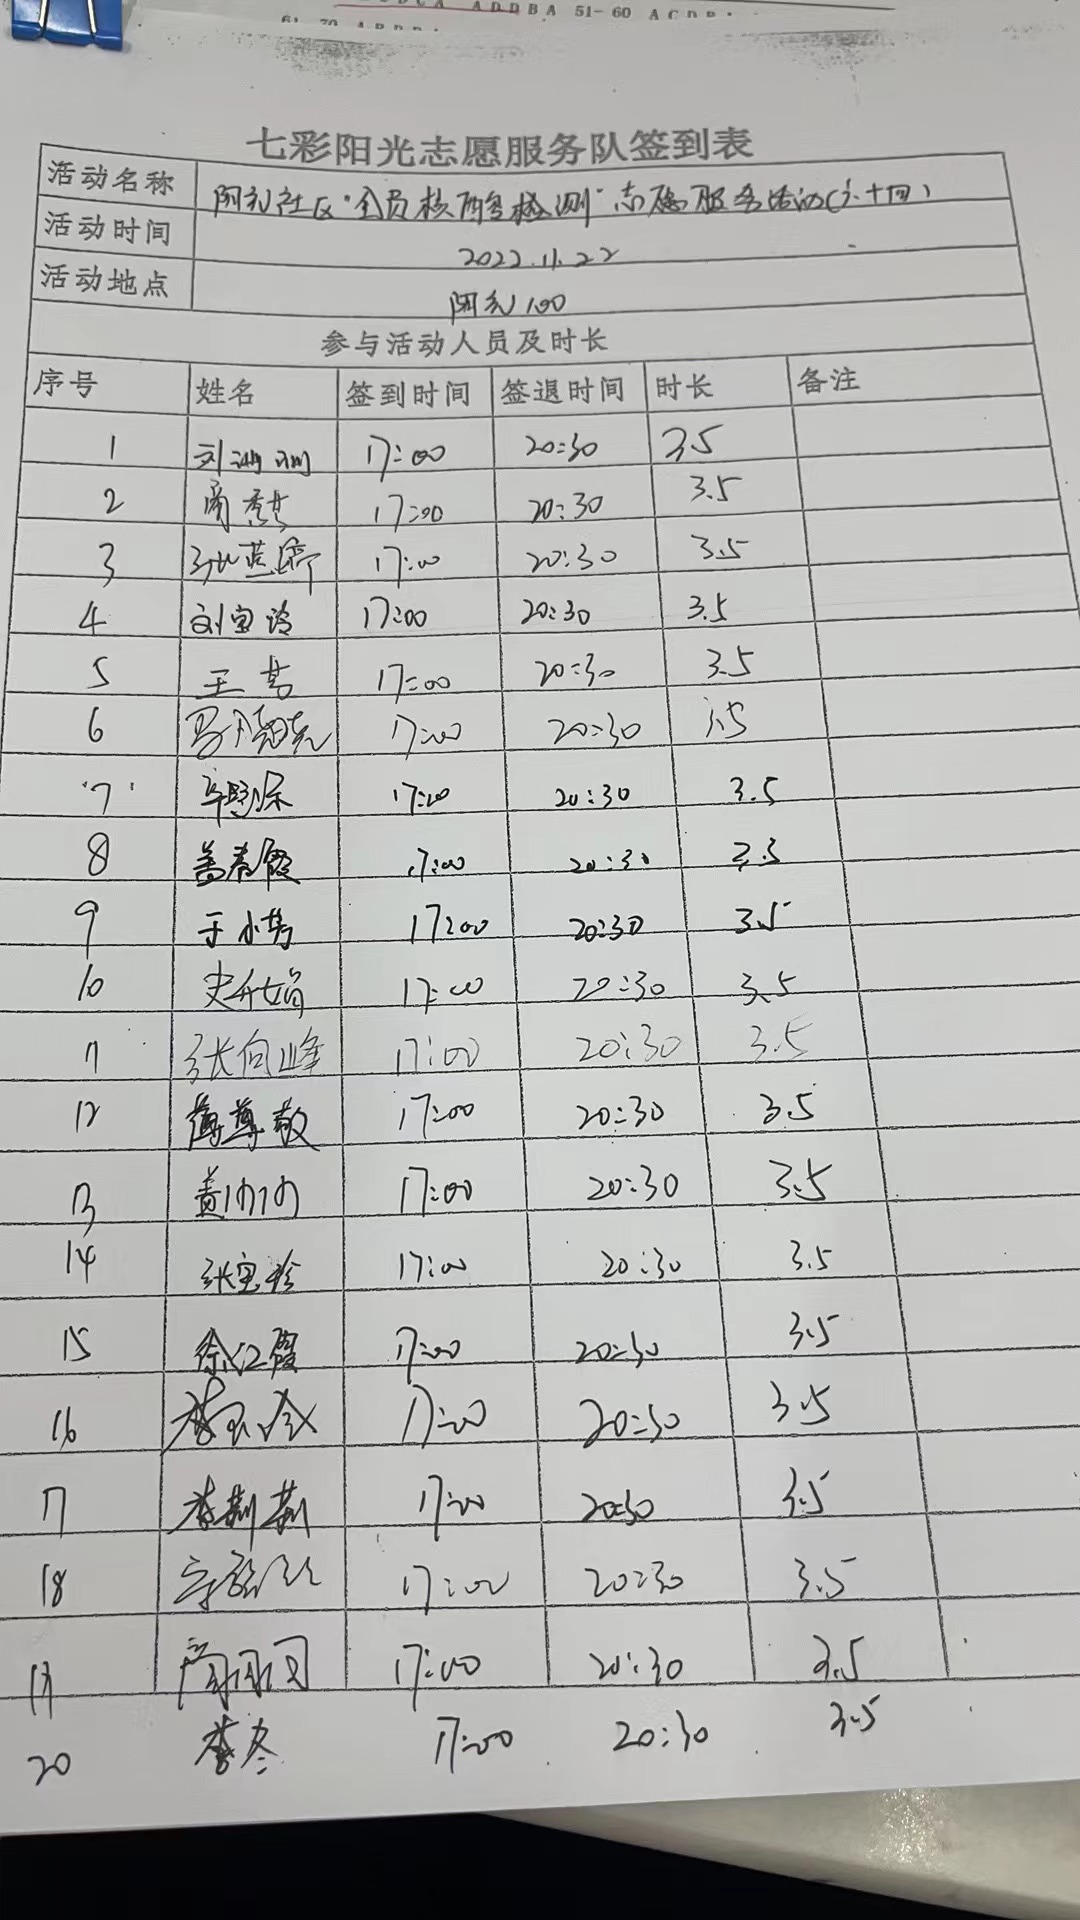 ADDBA 51-60 ACDB
七彩阳光志愿服务队签到表
活动名称 社区"全员核酸检测"志愿服务活动(六十四)
活动时间 2022.11.22
活动地点 100
参与活动人员及时长
序号 姓名 签到时间 签退时间 时长 备注
1 刘 17:00 20:30 3.5
2 17:00 20:30 3.5
3 17:00 20:30 3.5
4 刘宝玲 17:00 20:30 3.5
5 王 17:00 20:30 3.5
6 17:00 20:30 3.5
7 17:00 20:30 3.5
8 盖春霞 17:00 20:30 3.5
9 于小 17:00 20:30 3.5
10 史 娟 17:00 20:30 3.5
11 张向峰 17:00 20:30 3.5
12 尊敬 17:00 20:30 3.5
13 17:00 20:30 3.5
14 张宝珍 17:00 20:30 3.5
15 徐江霞 17:00 20:30 3.5
16 李 17:00 20:30 3.5
17 李莉莉 17:00 20:30 3.5
18 17:00 20:30 3.5
19 17:00 20:30 3.5
20 李冬 17:00 20:30 3.5